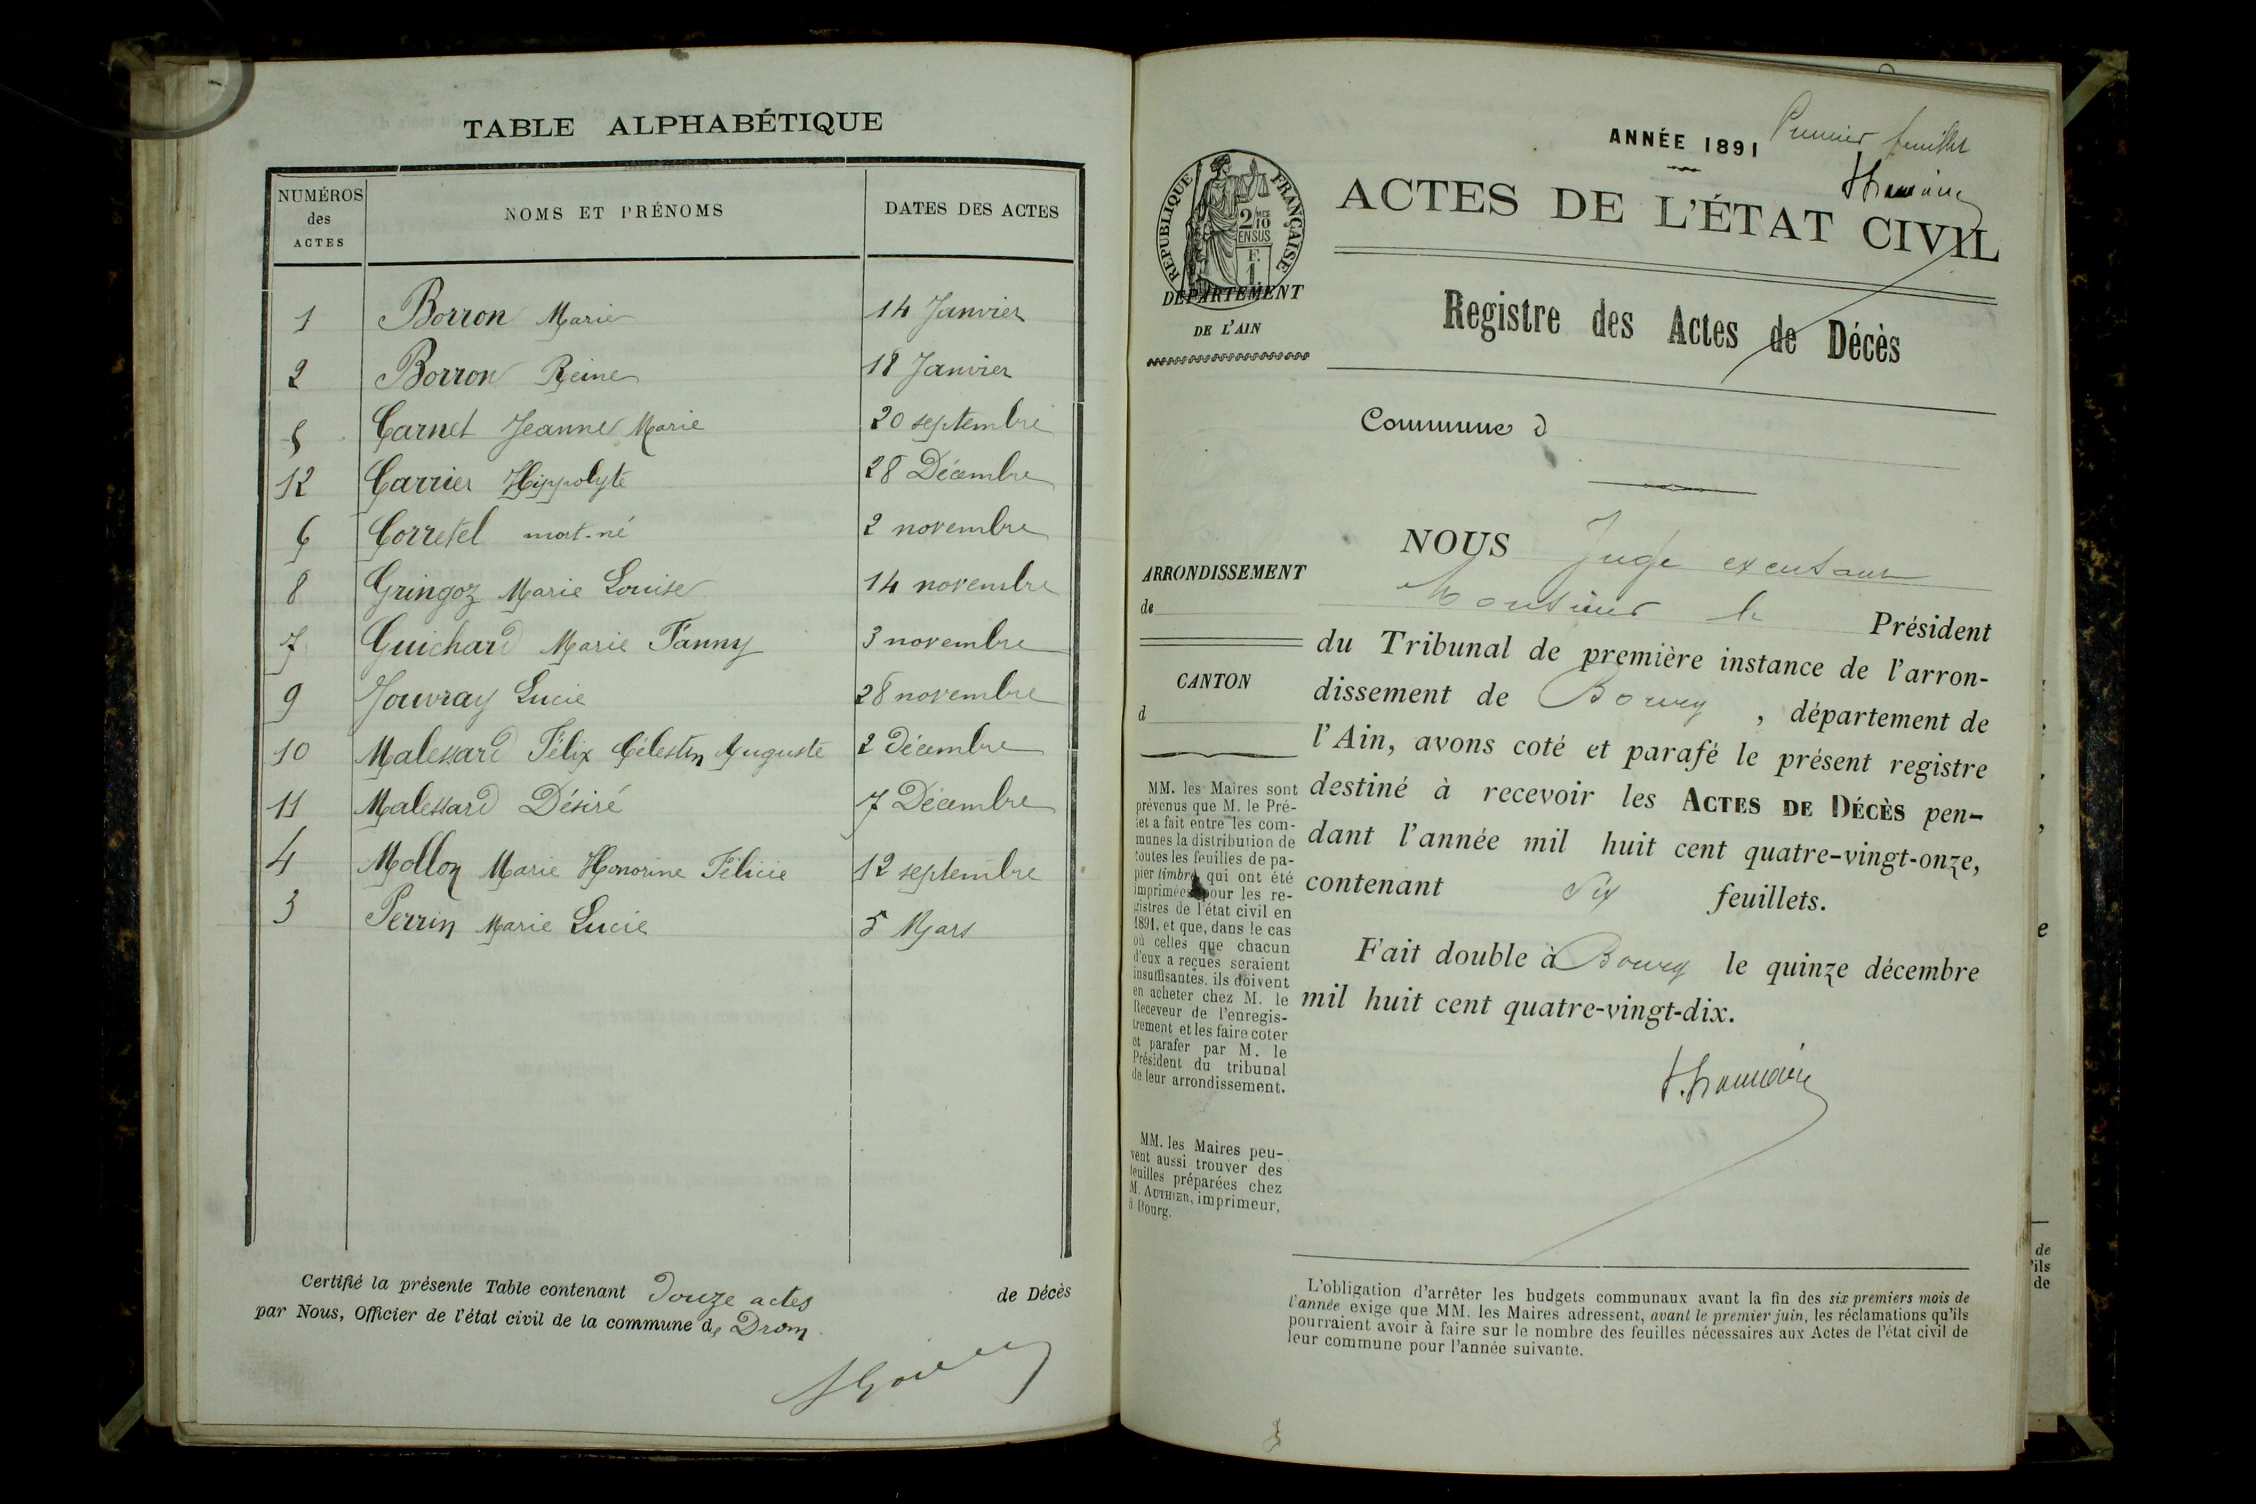 TABLE ALPHABÉTIQUE
NUMÉROS des ACTES NOMS ET PRÉNOMS DATES DES ACTES
1 Borron Marie 14 Janvier
2 Borron Reine 18 Janvier
5 Carnet Jeanne Marie 20 septembre
12 Carrier Hippolyte 28 Décembre
6 Corretel mort-né 2 novembre
8 Gringoz Marie Louise 14 novembre
7 Guichard Marie Fanny 3 novembre
9 Jouvray Lucie 28 novembre
10 Malessard Félix Célestin Auguste 2 Décembre
11 Malessard Désiré 7 Décembre
4 Mollon Marie Honorine Félicie 12 septembre
3 Perrin Marie Lucie 5 Mars
Certifié la présente Table contenant Douze actes de Décès
par Nous, Officier de l'état civil de la commune de Drom
Premier feuillet
ANNÉE 1891
RÉPUBLIQUE FRANÇAISE
2/10 EN SUS
F. 1
ACTES DE L'ÉTAT CIVIL
DÉPARTEMENT
DE L'AIN
Registre des Actes de Décès
Commune d
ARRONDISSEMENT
de
CANTON
d
MM. les Maires sont
prévenus que M. le Pré-
fet a fait entre les com-
munes la distribution de
toutes les feuilles de pa-
pier timbré qui ont été
imprimées pour les re-
gistres de l'état civil en
1891, et que, dans le cas
où celles que chacun
d'eux a reçues seraient
insuffisantes, ils doivent
en acheter chez M. le
Receveur de l'enregis-
trement et les faire coter
et parafer par M. le
Président du tribunal
de leur arrondissement.
MM. les Maires peu-
vent aussi trouver des
feuilles préparées chez
M. AUTHIER, imprimeur,
à Bourg.
NOUS Juge
Monsieur le Président
du Tribunal de première instance de l'arron-
dissement de Bourg, département de
l'Ain, avons coté et parafé le présent registre
destiné à recevoir les ACTES DE DÉCÈS pen-
dant l'année mil huit cent quatre-vingt-onze,
contenant Six feuillets.
Fait double à Bourg le quinze décembre
mil huit cent quatre-vingt-dix.
L'obligation d'arrêter les budgets communaux avant la fin des six premiers mois de
l'année exige que MM. les Maires adressent, avant le premier juin, les réclamations qu'ils
pourraient avoir à faire sur le nombre des feuilles nécessaires aux Actes de l'état civil de
leur commune pour l'année suivante.
e
de
'ils
de